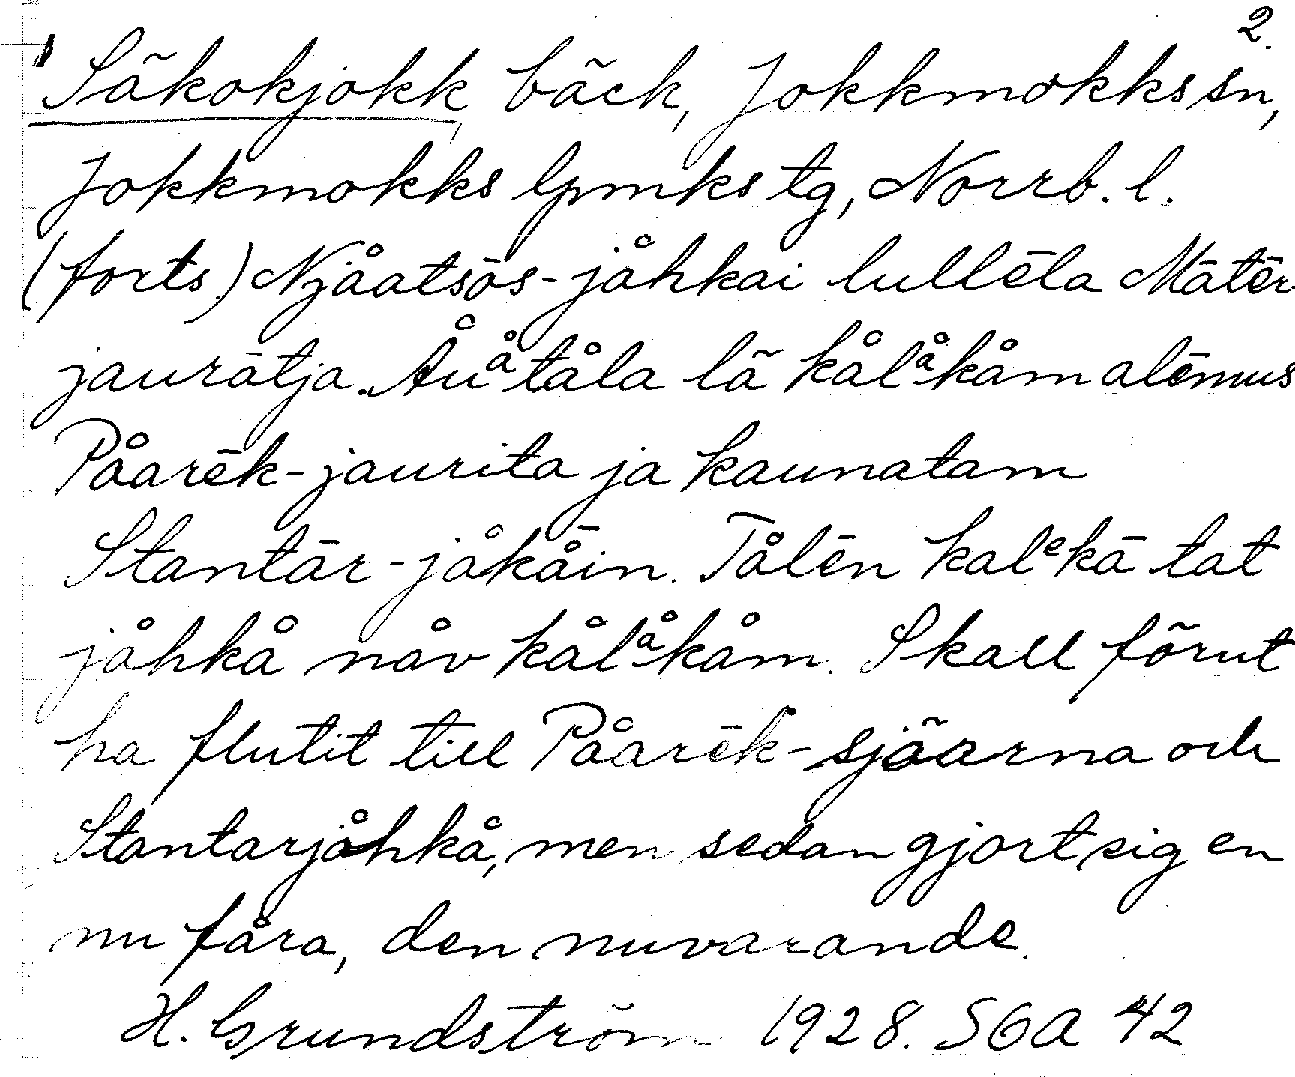 2.
Säkokjokk, bäck, Jokkmokks sn,
Jokkmokks lpmks tg, Norrb. l.
(forts) Njåatsōs-jåhkai lullēla Mātēr-
jaurātja. Åuåtåla lā kålåkåm alēmus
Påarēk-jaurita ja kaunatam
Stantār-jåkåin. Tålēn kalekā tat
jåhkå nåv kålåkåm. Skall förut
ha flutit till Påarēk-sjöarna och
Stantarjåhkå, men sedan gjort sig en
nu fåra, den nuvarande.
H. Grundström 1928. SOA 42